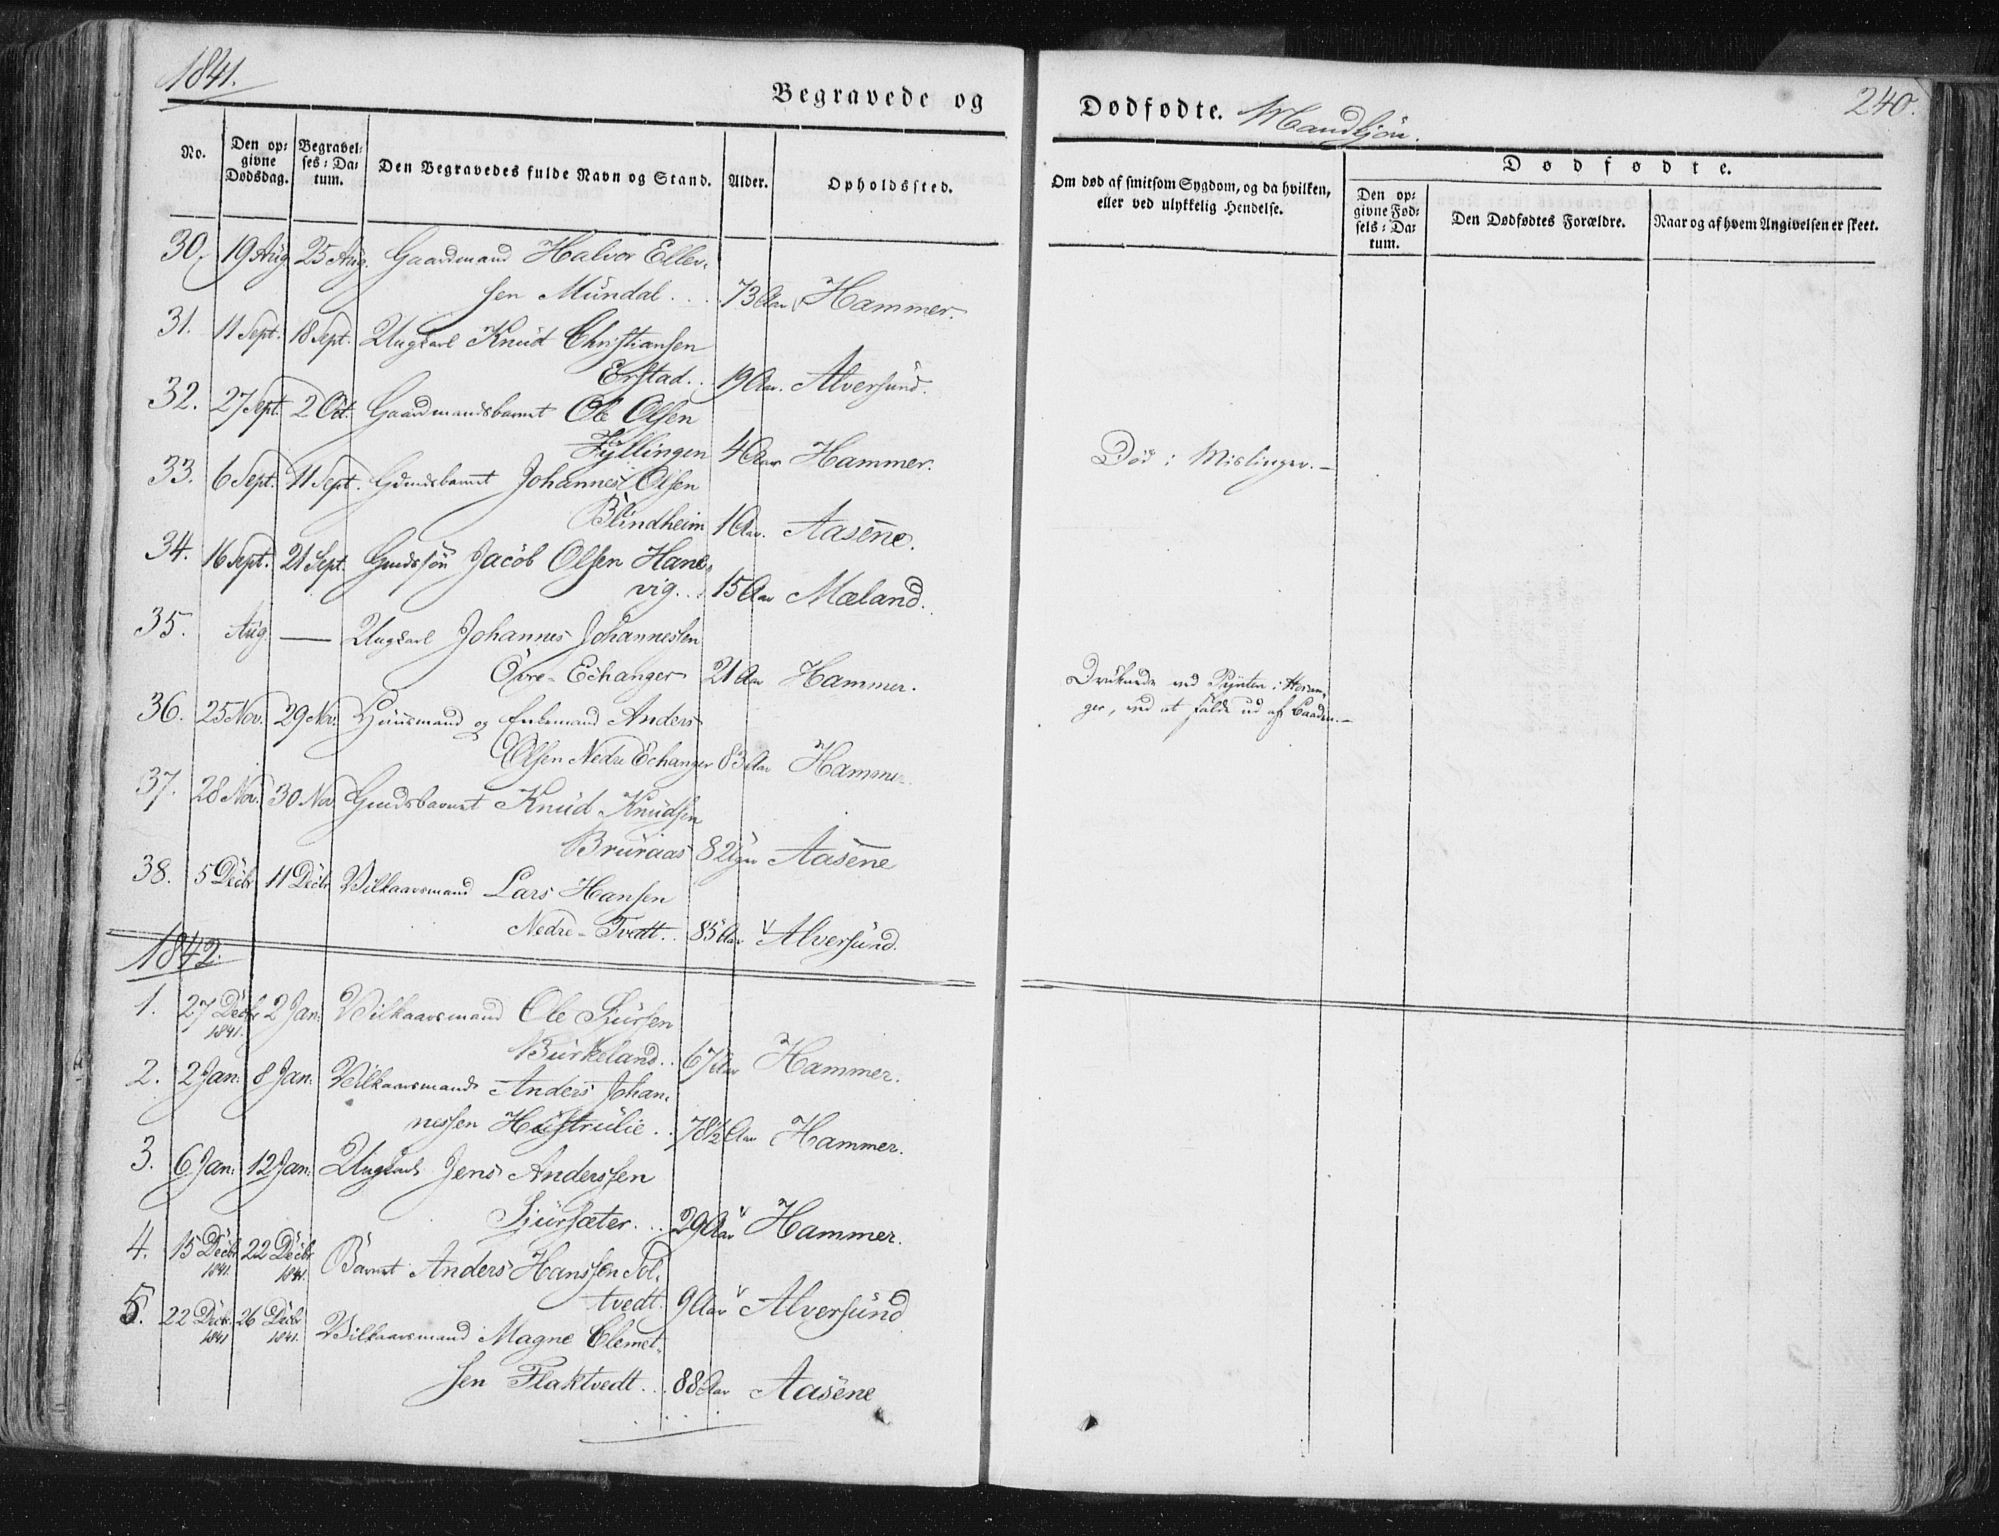 1841.
Begravede og
Dødfødte. Mandkjön.
240.
No.
Den opgivne Dødsdag.
Begravelses-Datum.
Den Begravedes fulde Navn og Stand.
Alder.
Opholdssted.
Om død af smitsom Sygdom, og da hvilken, eller ved ulykkelig Hendelse.
Dødfødte.
Den opgivne Fødsels-Datum.
Den Dødfødtes Forældre.
Naar og af hvem Angivelsen er skeet.
30. 19 Aug. 25 Aug. Gaardmand Halvor Ellev-
sen Mundal . . . 73 Aar Hammer.
31. 11 Sept. 18 Sept. Ungkarl Knud Christiansen
Erstad . . 19 Aar. Alversund.
32. 27 Sept. 2 Oct. Gaardmandsbarnet Ole Olsen
Fyllingen 4 Aar Hammer. Død i Mislinger. -
33. 6 Sept. 11 Sept. Gmdsbarnet Johannes Olsen
Blindheim 1 Aar. Aasene.
34. 16 Sept. 21 Sept. Gmdssøn Jacob Olsen Hane-
vig . . . 15 Aar Mæland.
35. Aug. — Ungkarl Johannes Johannessen
Øvre-Echanger 21 Aar Hammer. Druknede ved Pynten i Heran-
ger, ved at falde ud af Baaden. -
36. 25 Nov. 29 Nov. Huusmand og Enkemand Anders
Olsen Nedre Echanger 83 Aar Hammer.
37. 28 Nov. 30 Nov. Gmdsbarnet Knud Knudsen
Bruraas 8 Uger Aasene
38. 5 Decbr. 11 Decbr. Vilkaarsmand Lars Hansen
Nedre-Tvedt . . 85 Aar Alversund.
1842.
1. 27 Decbr. 1841. 2 Jan: Vilkaarsmand Ole Siursen
Burkeland . . 67 Aar Hammer.
2. 2 Jan: 8 Jan: Vilkaarsmand Anders Johan-
nessen Hustrulie . . 78½ Aar Hammer.
3. 6 Jan: 12 Jan: Ungkarl Jens Anderssen
Siursæter . . . 29 Aar Hammer.
4. 15 Decbr. 1841. 22 Decbr. 1841. Barnet Anders Hanssen Sol-
tvedt. 9 Aar Alversund
5. 22 Decbr. 1841 26 Decbr. 1841. Vilkaarsmand Magne Clemet-
sen Flaktvedt . . . 88 Aar Aasene